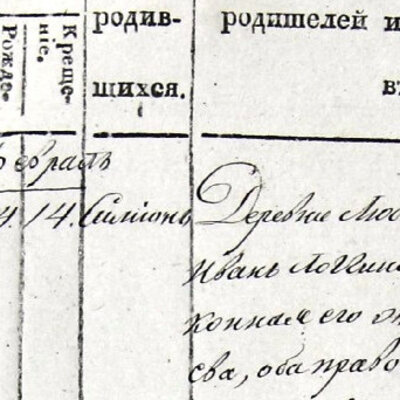 Рожде-
Креще-
ніе.
родив-
шихся.
родителей и
въ
Февраль
4. 14. Симіонъ Деревне Люб
Иванъ Логгин
коннам его ж
ева, оба право